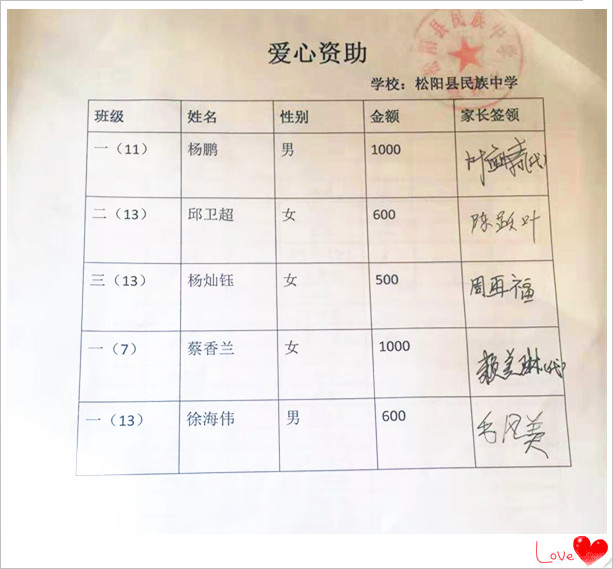 爱心资助
学校：松阳县民族中学
班级 姓名 性别 金额 家长签领
一（11） 杨鹏 男 1000 （代）
二（13） 邱卫超 女 600 陈跃叶
三（13） 杨灿钰 女 500 周再福
一（7） 蔡香兰 女 1000 赖美琳（代）
一（13） 徐海伟 男 600 毛凤美
Love